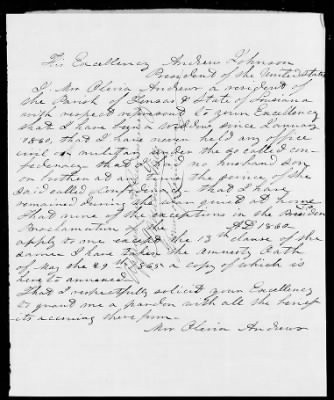 His Excellency Andrew Johnson
President of the United States
I Mrs Olivia Andrews a resident of
the Parish of Tensas & State of Louisiana
with respect represent to your Excellency
that I have been a widow since January
1860, that I have never held any office
civil or military under the so called con-
federacy that I had no husband son
or brother at any time in the service of the
said called Confederacy - that I have
remained during the war quiet at home
that none of the exceptions in the Presidents
Proclamation of the AD 1865
apply to me except the 13th clause of the
same I have taken the Amnesty Oath
of May the 29th 1865 a copy of which is
here to annexed.
That I respectfully solicit your Excellency
to grant me a pardon with all the benef-
its accruing there from
Mrs Olivia Andrews